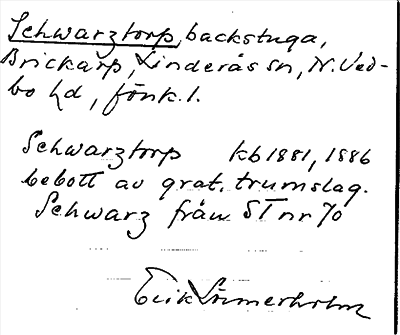 Schwarztorp, backstuga,
Brickarp, Linderås sn, N. Ved-
bo hd, Jönk. l.
Schwarztorp kb 1881, 1886
bebott av grat. trumslag.
Schwarz från ST nr 70
Erik Lönnerholm